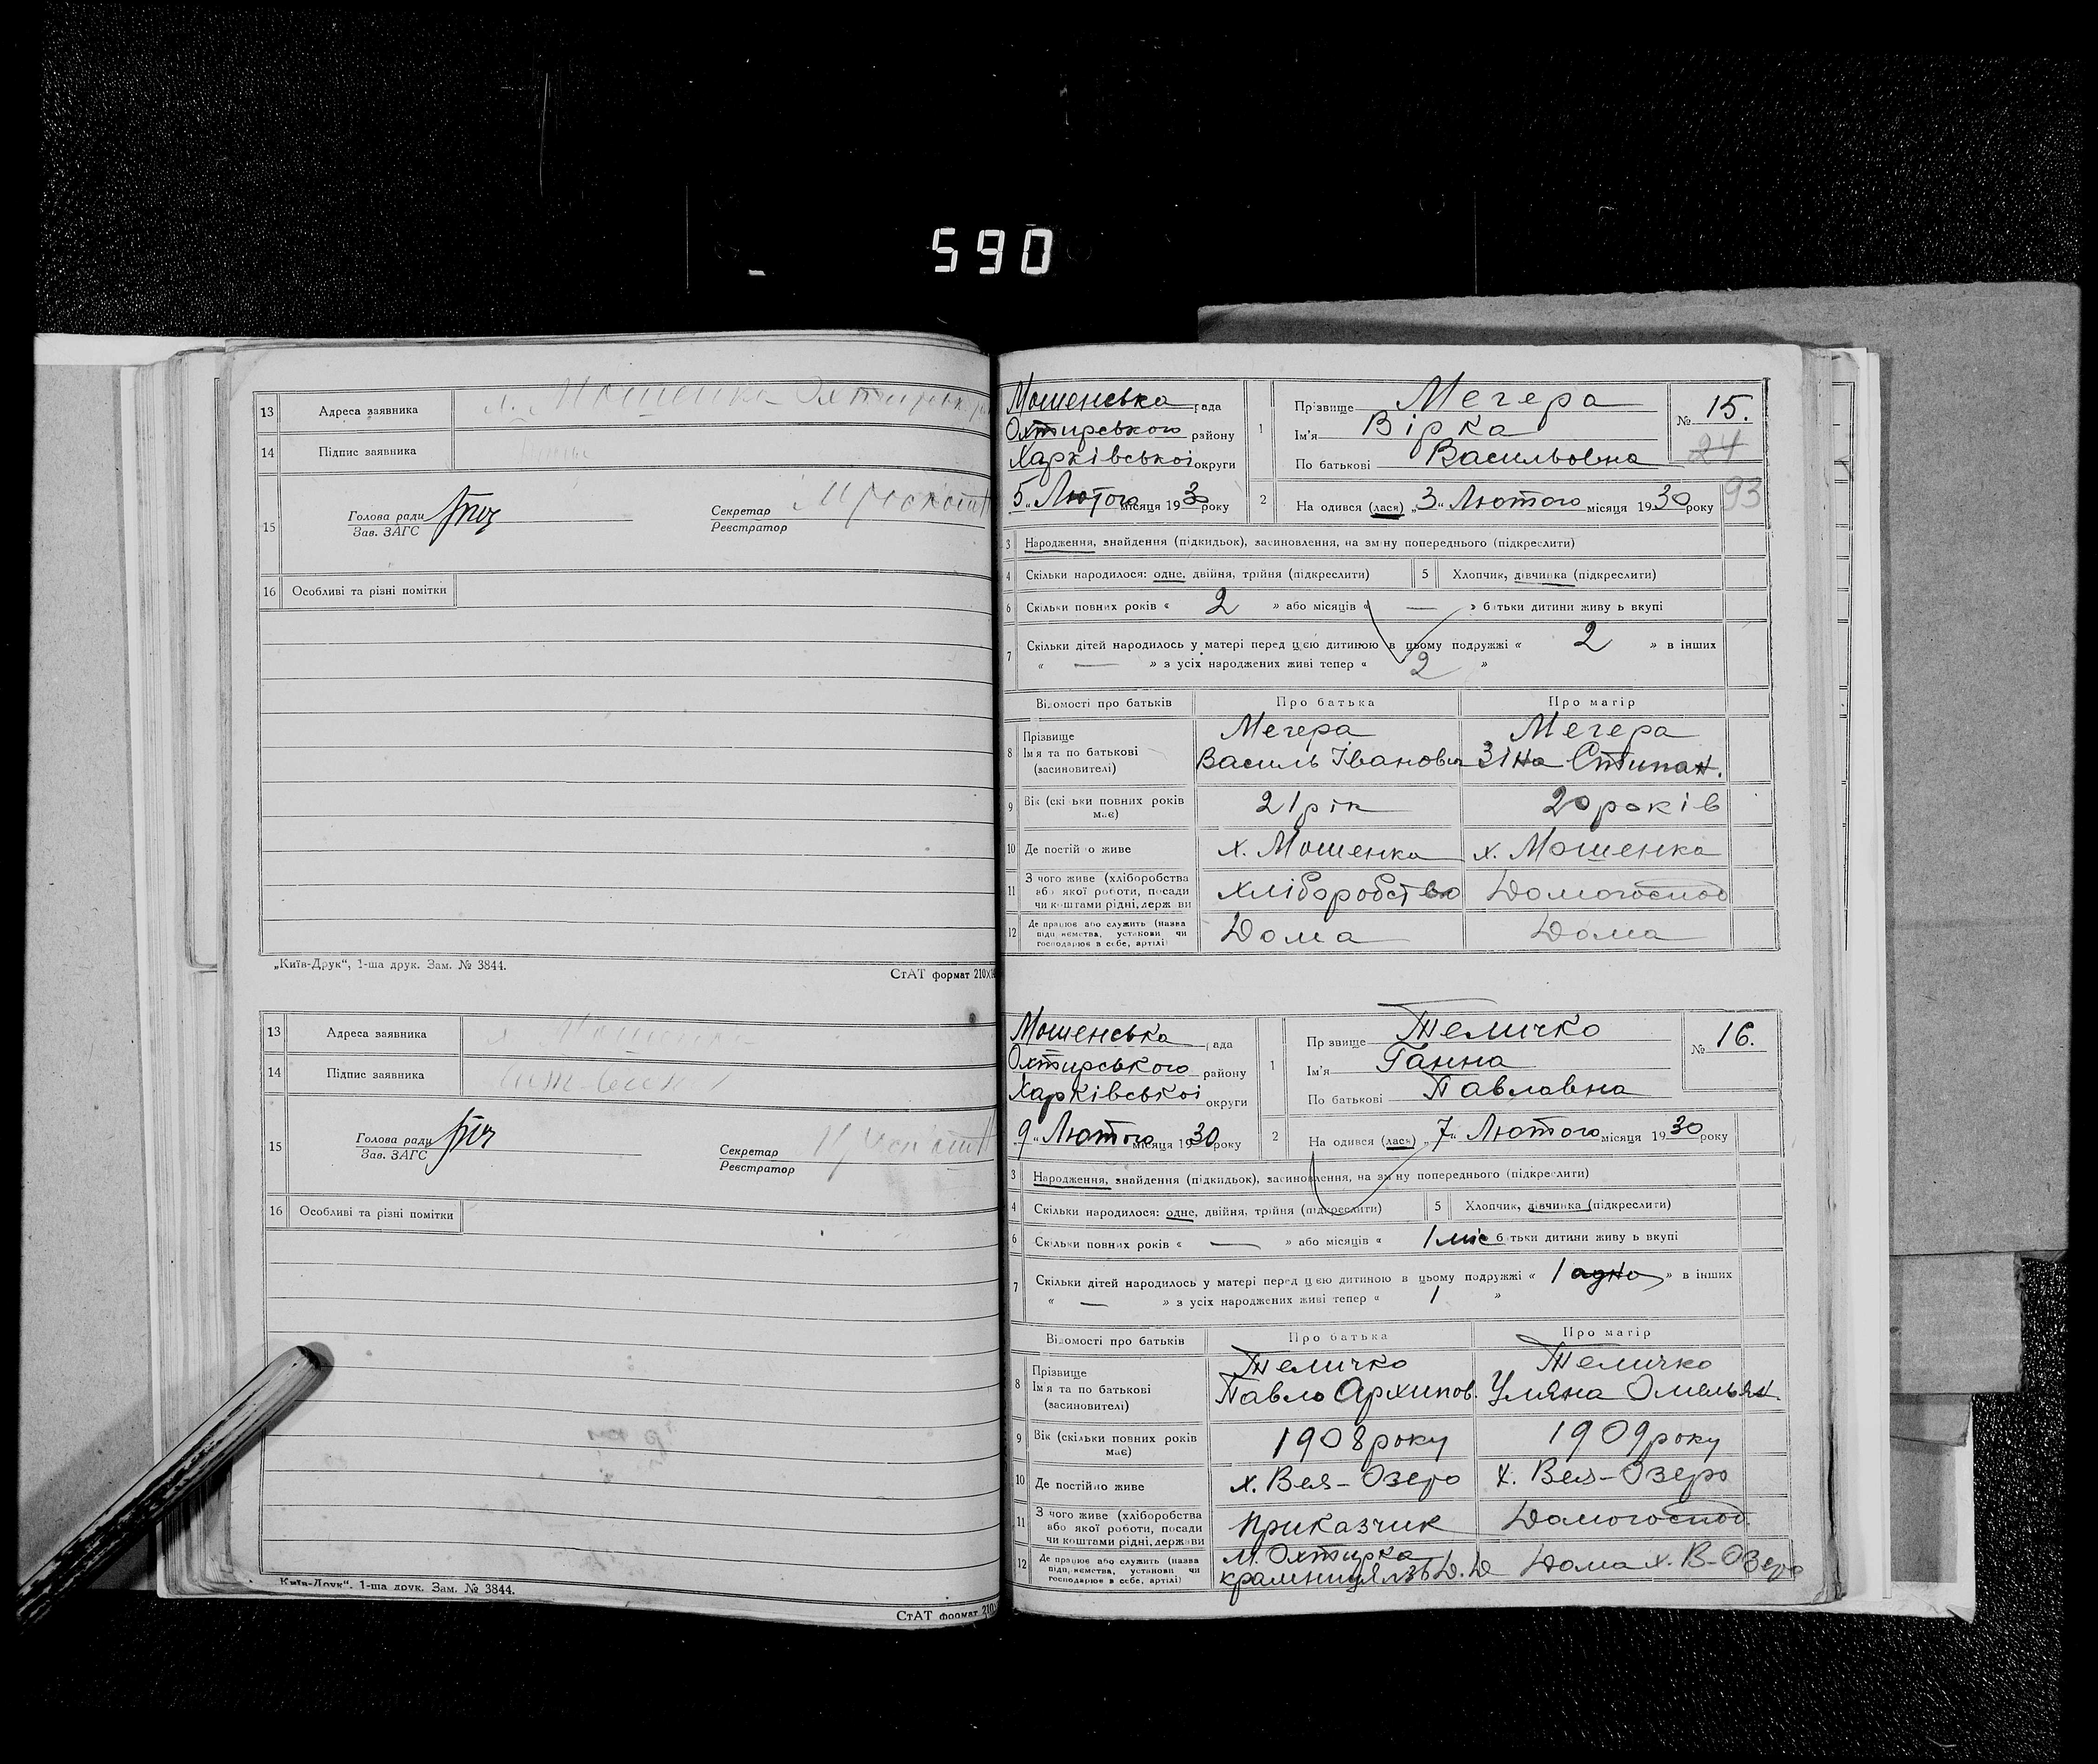 590
13 Адреса заявника Мошенка Охтирськ
14 Підпис заявника
15 Голова ради Секретар
Зав. ЗАГС Реєстратор
16 Особливі та різні помітки
„Київ-Друк“, 1-ша друк. Зам. № 3844.
СтАТ формат 210х
13 Адреса заявника х Мошенка
14 Підпис заявника
15 Голова ради Секретар
Зав. ЗАГС Реєстратор
16 Особливі та різні помітки
Київ-Друк“, 1-ша друк. Зам. № 3844.
СтАТ формат 210
Мошенська рада
Охтирського району
Харківської округи
5 „ Лютого місяця 1930 року
1 Прізвище Мегера
Ім'я Вірка
По батькові Васильовна
№ 15.
24
93
2 На одився (лася) „3“ Лютого місяця 1930 року
3 Народження, знайдення (підкидьок), засиновлення, на зміну попереднього (підкреслити)
4 Скільки народилося: одне, двійня, трійня (підкреслити) 5 Хлопчик, дівчинка (підкреслити)
6 Скільки повних років « 2 » або місяців « — » батьки дитини живу ь вкупі
7 Скільки дітей народилось у матері перед цією дитиною в цьому подружжі « 2 » в інших
« — » з усіх народжених живі тепер « 2 »
Відомості про батьків Про батька Про матір
8 Прізвище Мегера Мегера
Ім'я та по батькові Василь Іванович Зіна Стипан.
(засиновителі)
9 Вік (скільки повних років має) 21 рік 20 років
10 Де постійно живе х. Мошенка х. Мошенка
11 З чого живе (хліборобства
або якої роботи, посади Хліборобство Домогоспод
чи коштами рідні, держ ви
12 Де працює або служить (назва
підприємства, установи чи Дома Дома
господарює в себе, артілі)
Мошенська рада
Охтирського району
Харківської округи
9 „ Лютого місяця 1930 року
1 Пр звище Теличко
Ім'я Ганна
По батькові Павлавна
№ 16.
2 На одився (лася) „7“ Лютого місяця 1930 року
3 Народження, знайдення (підкидьок), засиновлення, на зміну попереднього (підкреслити)
4 Скільки народилося: одне, двійня, трійня (підкреслити) 5 Хлопчик, дівчинка (підкреслити)
6 Скільки повних років « — » або місяців « 1 міс батьки дитини живу ь вкупі
7 Скільки дітей народилось у матері перед цією дитиною в цьому подружжі « 1 одно » в інших
« — » з усіх народжених живі тепер « 1 »
Відомості про батьків Про батька Про матір
8 Прізвище Теличко Теличко
Ім'я та по батькові Павло Архипов. Уляна Омельян.
(засиновителі)
9 Вік (скільки повних років має) 1908 року 1909 року
10 Де постійно живе х. Вел-Озеро х. Вел-Озеро
11 З чого живе (хліборобства
або якої роботи, посади приказчик Домогоспод.
чи коштами рідні, держави
12 Де працює або служить (назва м. Охтирка
підприємства, установи чи крамниця Дома х. В-Озеро
господарює в себе, артілі)